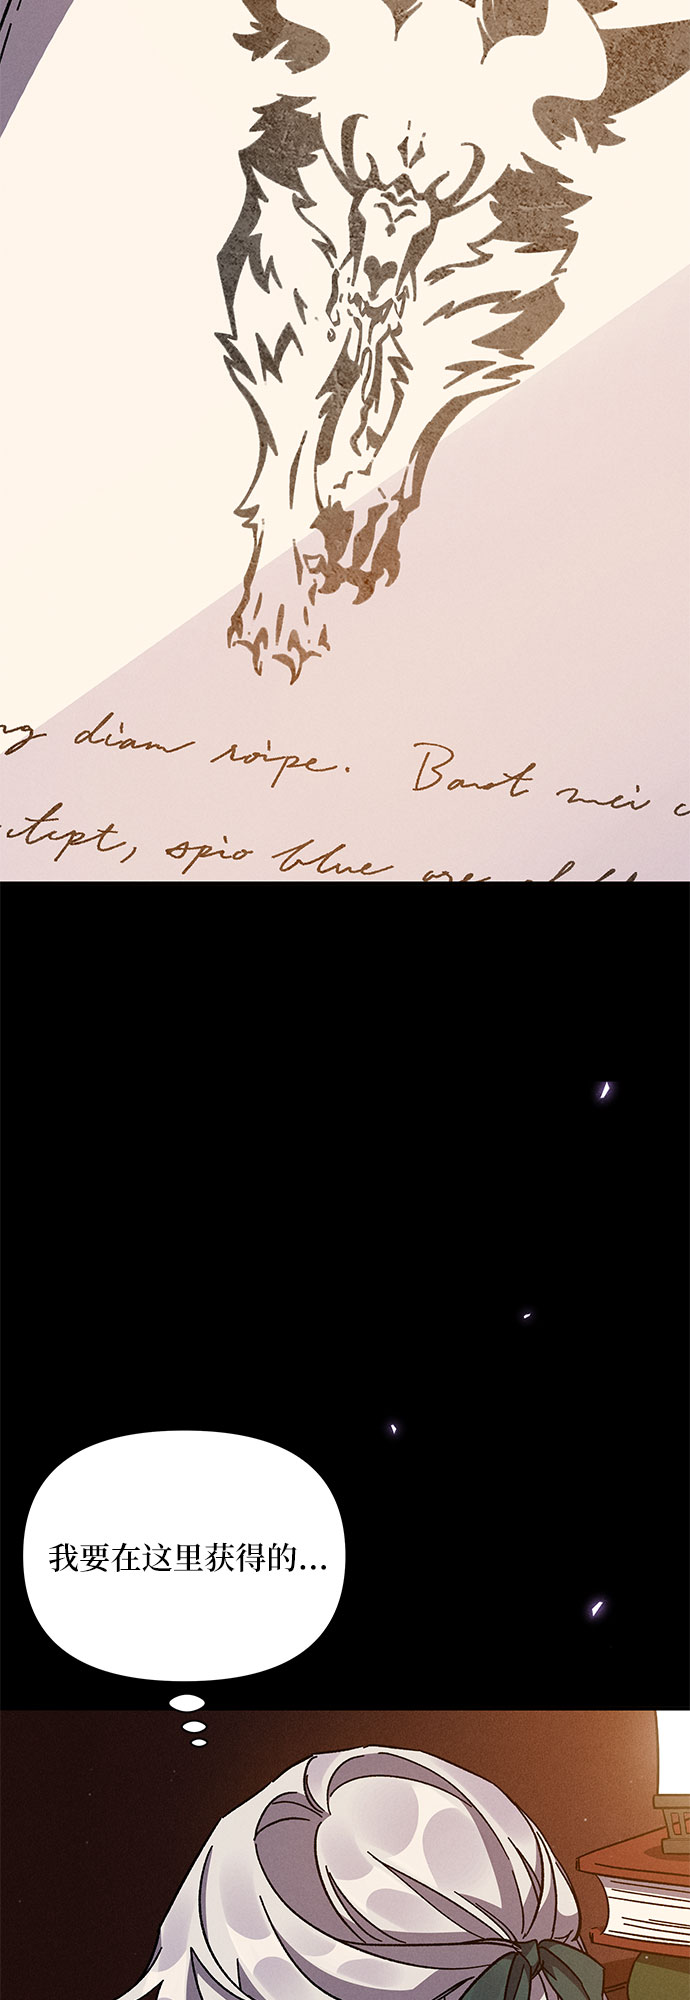 ng diam roipe. Barot mei
tept, spio blue are
我要在这里获得的…